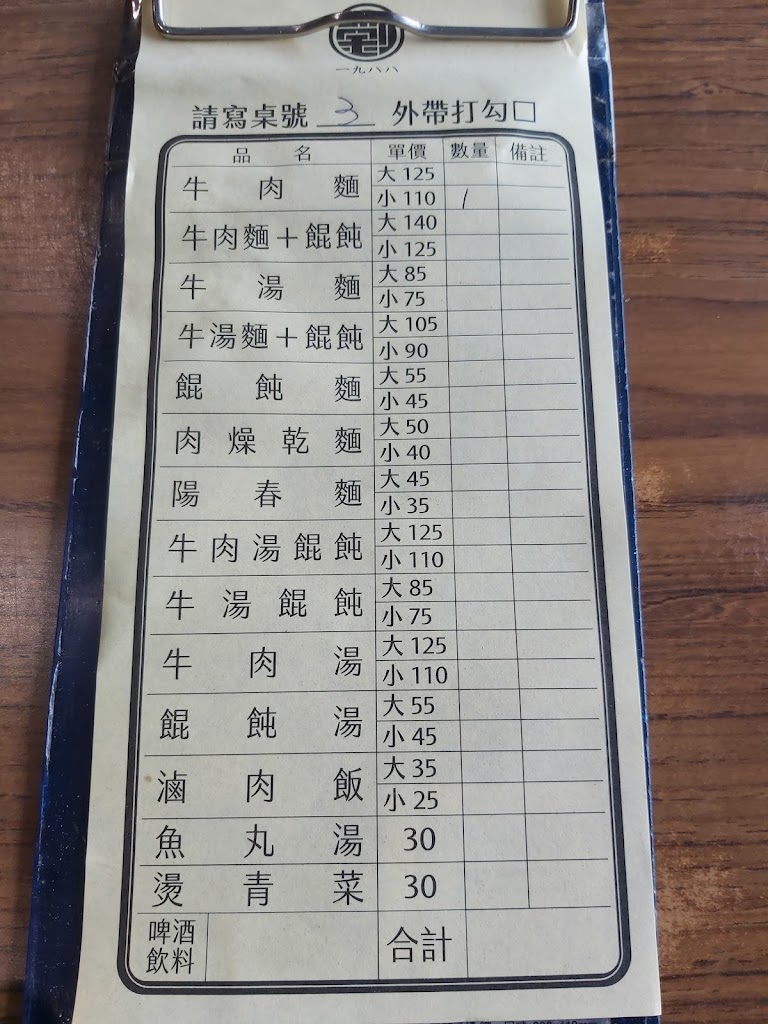 一九八八
請寫桌號 3 外帶打勾□
品名 單價 數量 備註
牛肉麵 大 125
小 110 1
牛肉麵＋餛飩 大 140
小 125
牛湯麵 大 85
小 75
牛湯麵＋餛飩 大 105
小 90
餛飩麵 大 55
小 45
肉燥乾麵 大 50
小 40
陽春麵 大 45
小 35
牛肉湯餛飩 大 125
小 110
牛湯餛飩 大 85
小 75
牛肉湯 大 125
小 110
餛飩湯 大 55
小 45
滷肉飯 大 35
小 25
魚丸湯 30
燙青菜 30
啤酒飲料 合計